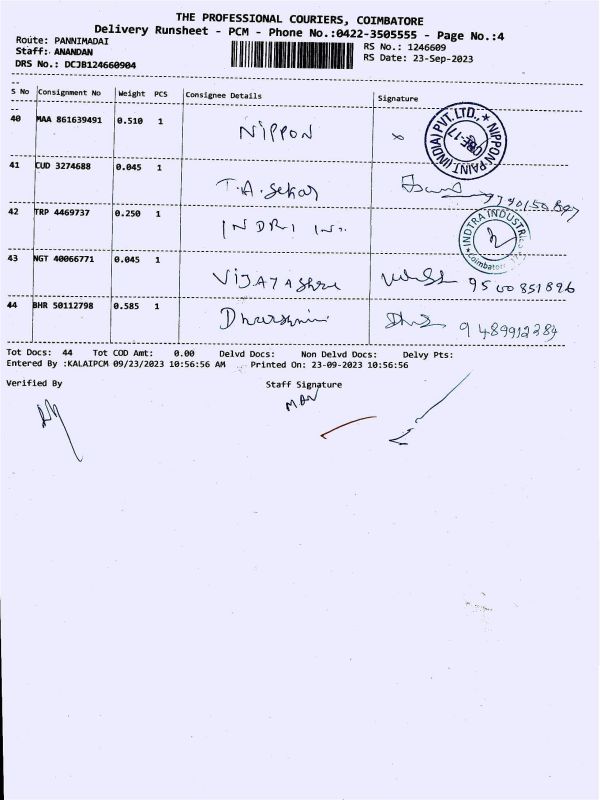 THE PROFESSIONAL COURIERS, COIMBATORE
Delivery Runsheet - PCM - Phone No.:0422-3505555 - Page No.:4
Route: PANNIMADAI
RS No.: 1246609
Staff: ANANDAN
RS Date: 23-Sep-2023
DRS No.: DCJB124660904
S No Consignment No Weight PCS Consignee Details Signature
40 MAA 861639491 0.510 1 NIPPON
NIPPON PAINT (INDIA) PVT. LTD.,
CBE-17
41 CUD 3274688 0.045 1 T.A. Sekar
42 TRP 4469737 0.250 1 INDRI IN..
INDTRA INDUSTRI
Coimbatore
43 NGT 40066771 0.045 1 VIJAYASHREE 9500851896
44 BHR 50112798 0.585 1 Dharshini 9489912284
Tot Docs: 44 Tot COD Amt: 0.00 Delvd Docs: Non Delvd Docs: Delvy Pts:
Entered By :KALAIPCM 09/23/2023 10:56:56 AM Printed On: 23-09-2023 10:56:56
Verified By Staff Signature